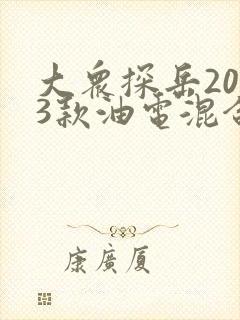 大衆探岳20
3款油電混合
康廣厦